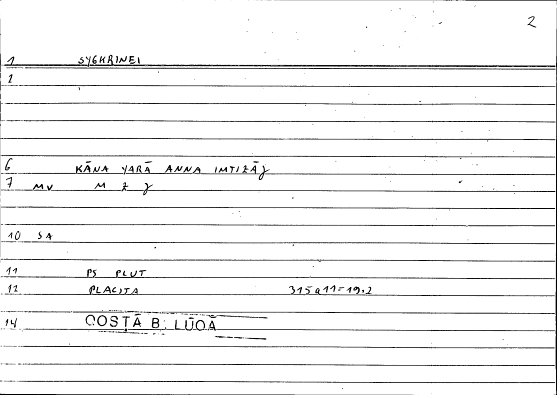 2
1 SYGKRINEI
2
6 KĀNA YARĀ ANNA IMTIZĀǧ
7 MV M Z ǧ
10 SA
11 PS PLUT
12 PLACITA 315a11=19.2
14 QOSṬĀ B. LŪQĀ